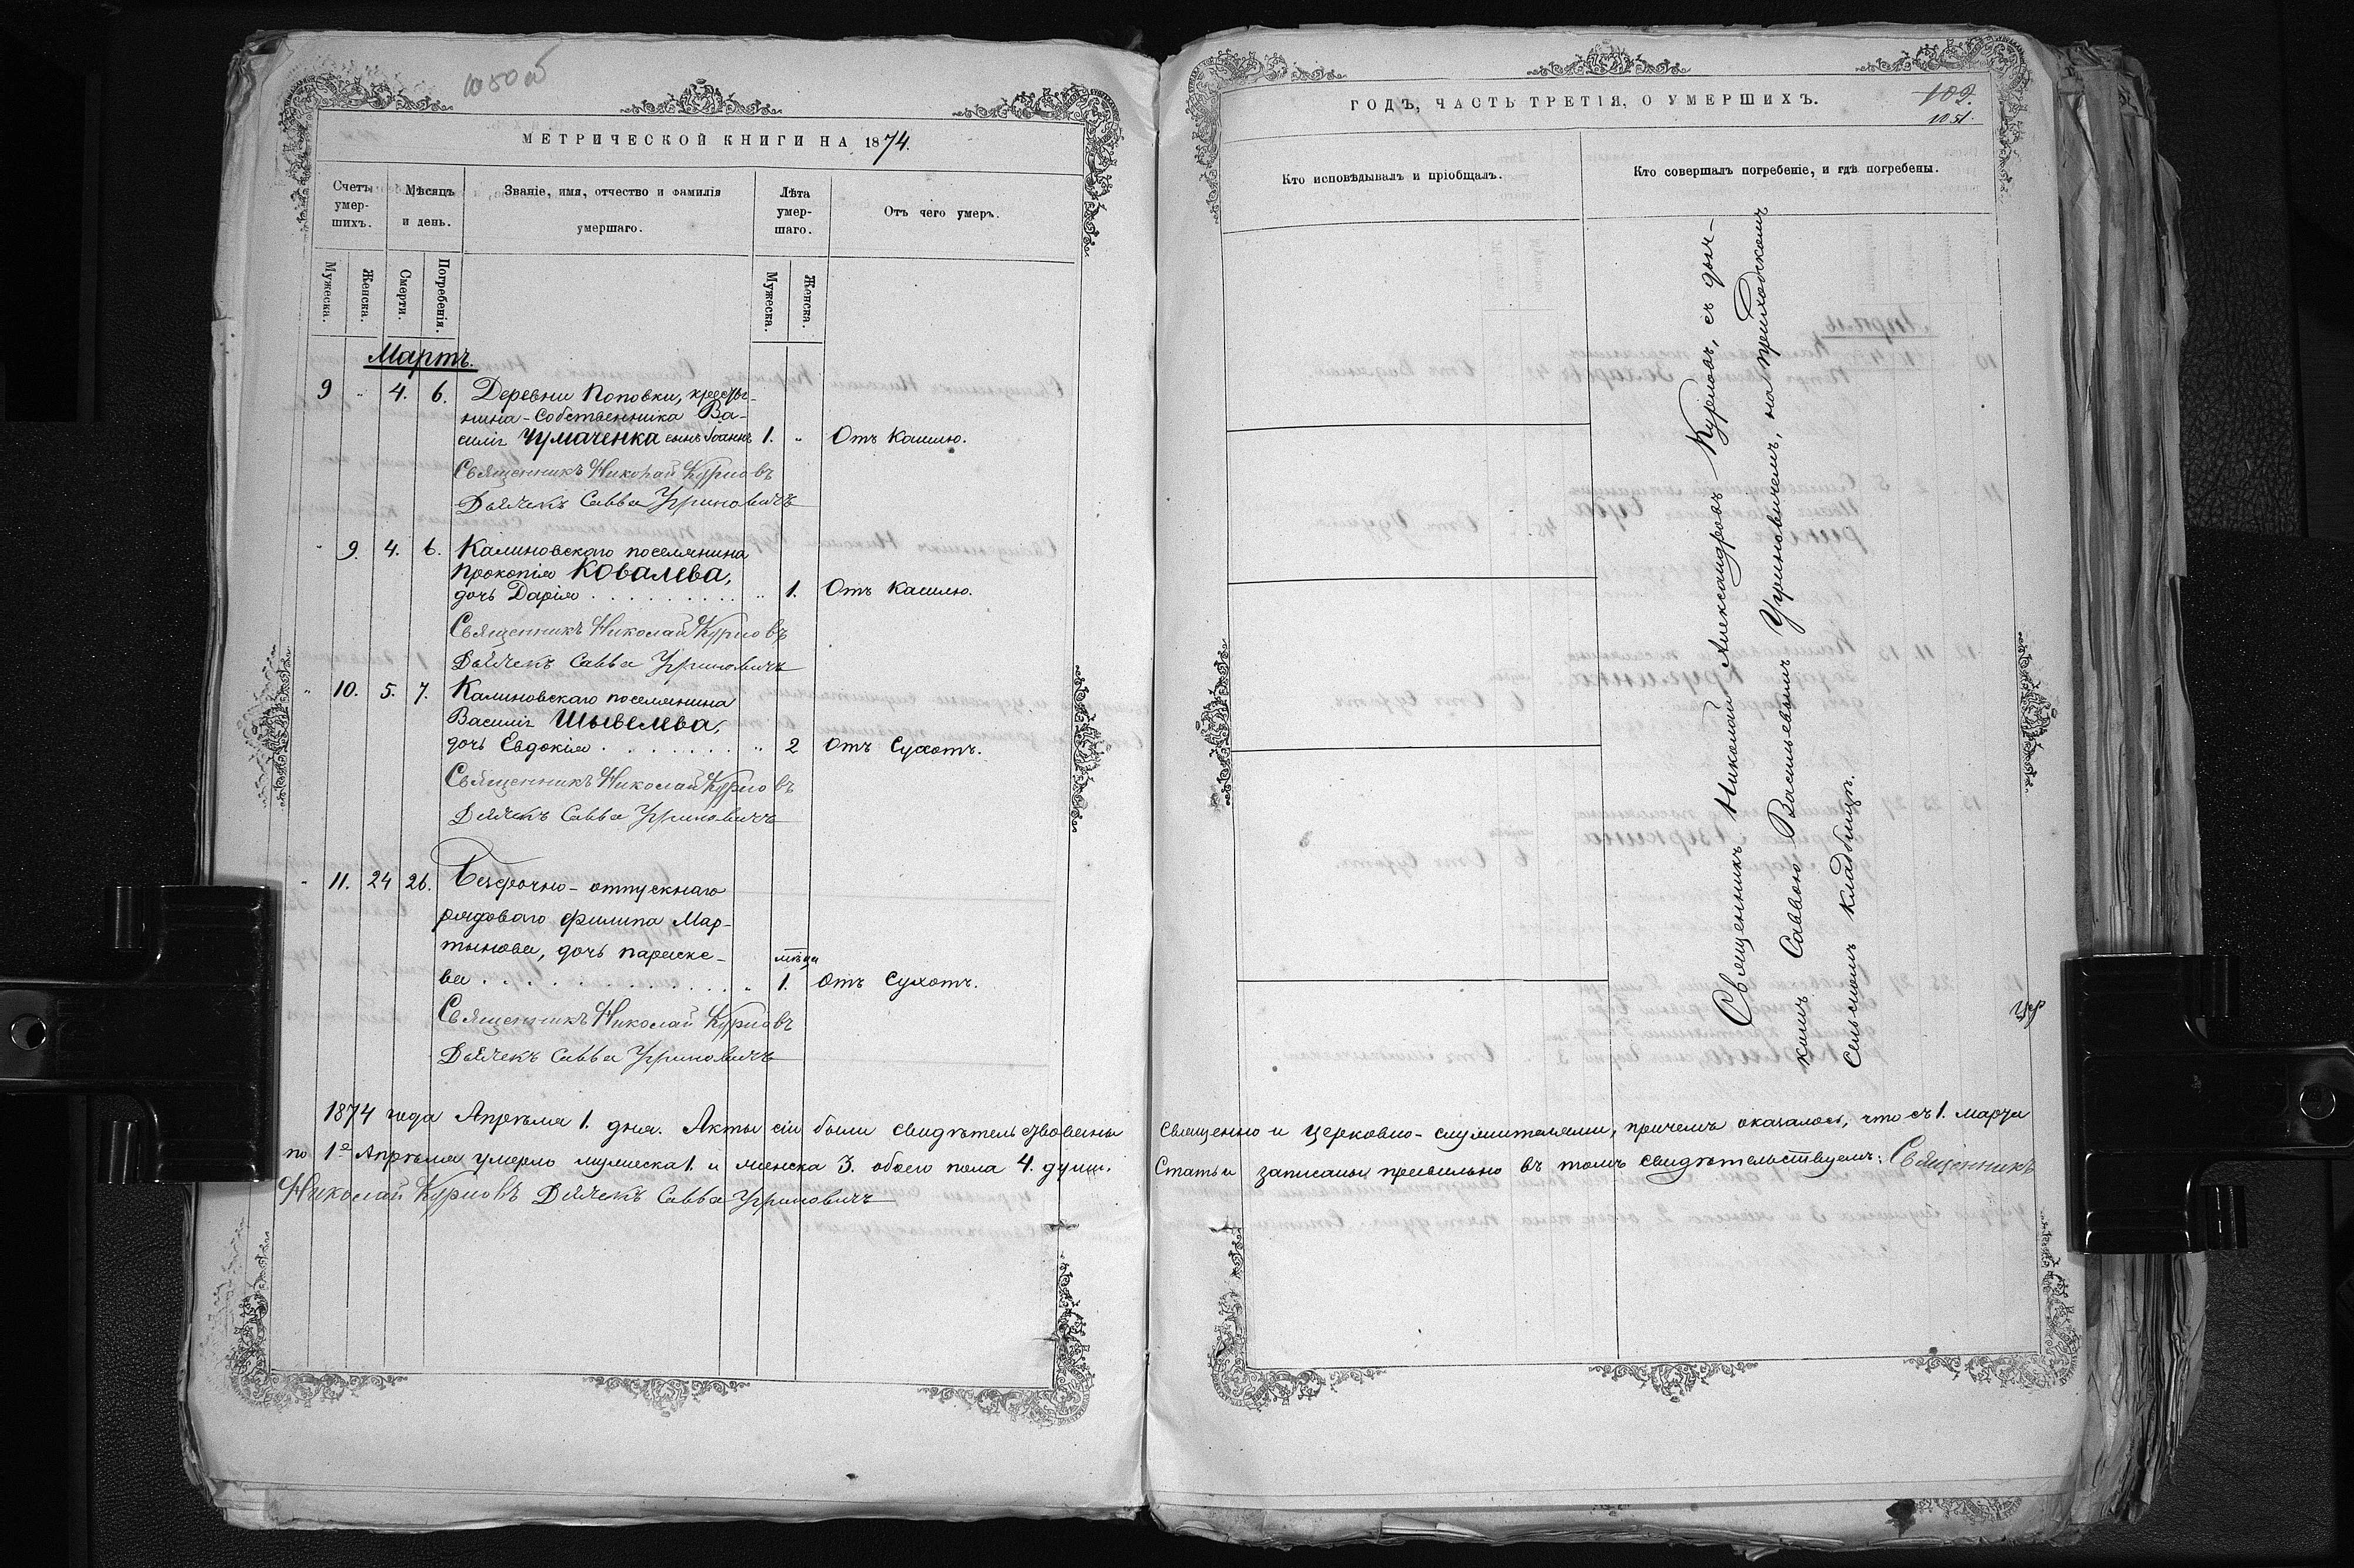 1050об
МЕТРИЧЕСКОЙ КНИГИ НА 1874.
Счетъ умер-шихъ.
Мѣсяцъ и день.
Званіе, имя, отчество и фамилія умершаго.
Лѣта умер-шаго.
Отъ чего умеръ.
Мужеска.
Женска.
Смерти.
Погребенія.
Мужеска.
Женска.
Мартъ.
9 " 4. 6. Деревни Поповки, крестья-
нина-собственника Ва-
силія Чумаченка сынъ Іоаннъ 1. " Отъ кашлю.
Священникъ Николай Курловъ
Дьячекъ Савва Угриновичъ
" 9. 4. 6. Калиновскаго поселянина
Прокопія Ковалева,
дочь Дарія . . . . . . . . " 1. Отъ кашлю.
Священникъ Николай Курловъ
Дьячекъ Савва Угриновичъ
" 10. 5. 7. Калиновскаго поселянина
Василія Шывелева,
дочь Евдокія . . . . . . . " 2 Отъ сухотъ.
Священникъ Николай Курловъ
Дьячекъ Савва Угриновичъ
" 11. 24 26. Безсрочно-отпускнаго
рядоваго Филипа Мар-
тынова, дочь Параске-
ва . . . . . . . . . . . " мѣсяца 1. Отъ сухотъ.
Священникъ Николай Курловъ
Дьячекъ Савва Угриновичъ
1874 года Апрѣля 1. дня. Акты сіи были свидѣтельствованы
по 1е Апрѣля умерло мужеска 1. и женска 3. обоего пола 4. душ.
Николай Курловъ Дьячекъ Савва Угриновичъ
ГОДЪ, ЧАСТЬ ТРЕТІЯ, О УМЕРШИХЪ.
102.
1051.
Кто исповѣдывалъ и пріобщалъ.
Кто совершалъ погребеніе, и гдѣ погребены.
Священникъ Николай Александровъ Курловъ, съ дьяч-
комъ Саввою Васильевымъ Угриновичемъ, на приходскомъ
сельскомъ кладбищѣ.
священно и церковно-служителями, причемъ оказалось, что съ 1. марта
Статьи записаны правильно въ томъ свидѣтельствуемъ: Священникъ